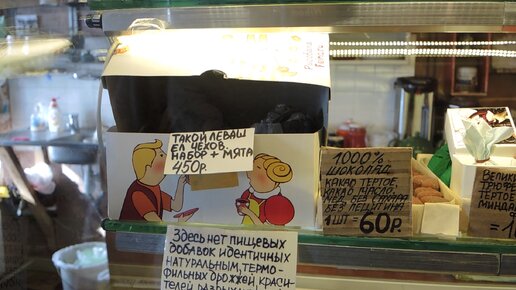 ТАКОЙ ЛЕВАШ
ЕЛ ЧЕХОВ
НАБОР + МЯТА
450р.
1000%
ШОКОЛАД
КАКАО ТЕРТОЕ
КАКАО МАСЛО,
МЁД БЕЗ САХАРА
1 ШТ = 60Р.
ВЕЛИК
ТРЮФ
ТЕРТОЕ
МИНДА
= 1
Здесь нет пищевых
добавок идентичных
натуральным, термо-
фильных дрожжей, краси-
телей, разрыхл